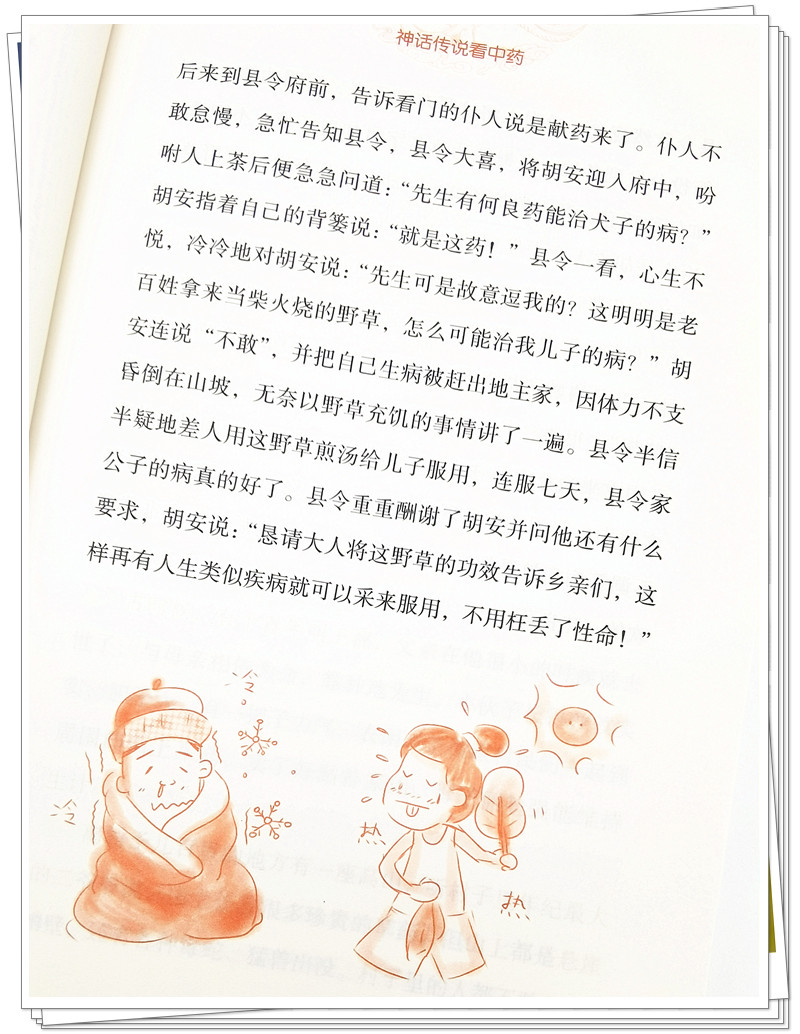 神话传说看中药
后来到县令府前，告诉看门的仆人说是献药来了。仆人不
敢怠慢，急忙告知县令，县令大喜，将胡安迎入府中，吩
咐人上茶后便急急问道：“先生有何良药能治犬子的病？”
胡安指着自己的背篓说：“就是这药！”县令一看，心生不
悦，冷冷地对胡安说：“先生可是故意逗我的？这明明是老
百姓拿来当柴火烧的野草，怎么可能治我儿子的病？”胡
安连说“不敢”，并把自己生病被赶出地主家，因体力不支
昏倒在山坡，无奈以野草充饥的事情讲了一遍。县令半信
半疑地差人用这野草煎汤给儿子服用，连服七天，县令家
公子的病真的好了。县令重重酬谢了胡安并问他还有什么
要求，胡安说：“恳请大人将这野草的功效告诉乡亲们，这
样再有人生类似疾病就可以采来服用，不用枉丢了性命！”
冷
冷
热
热